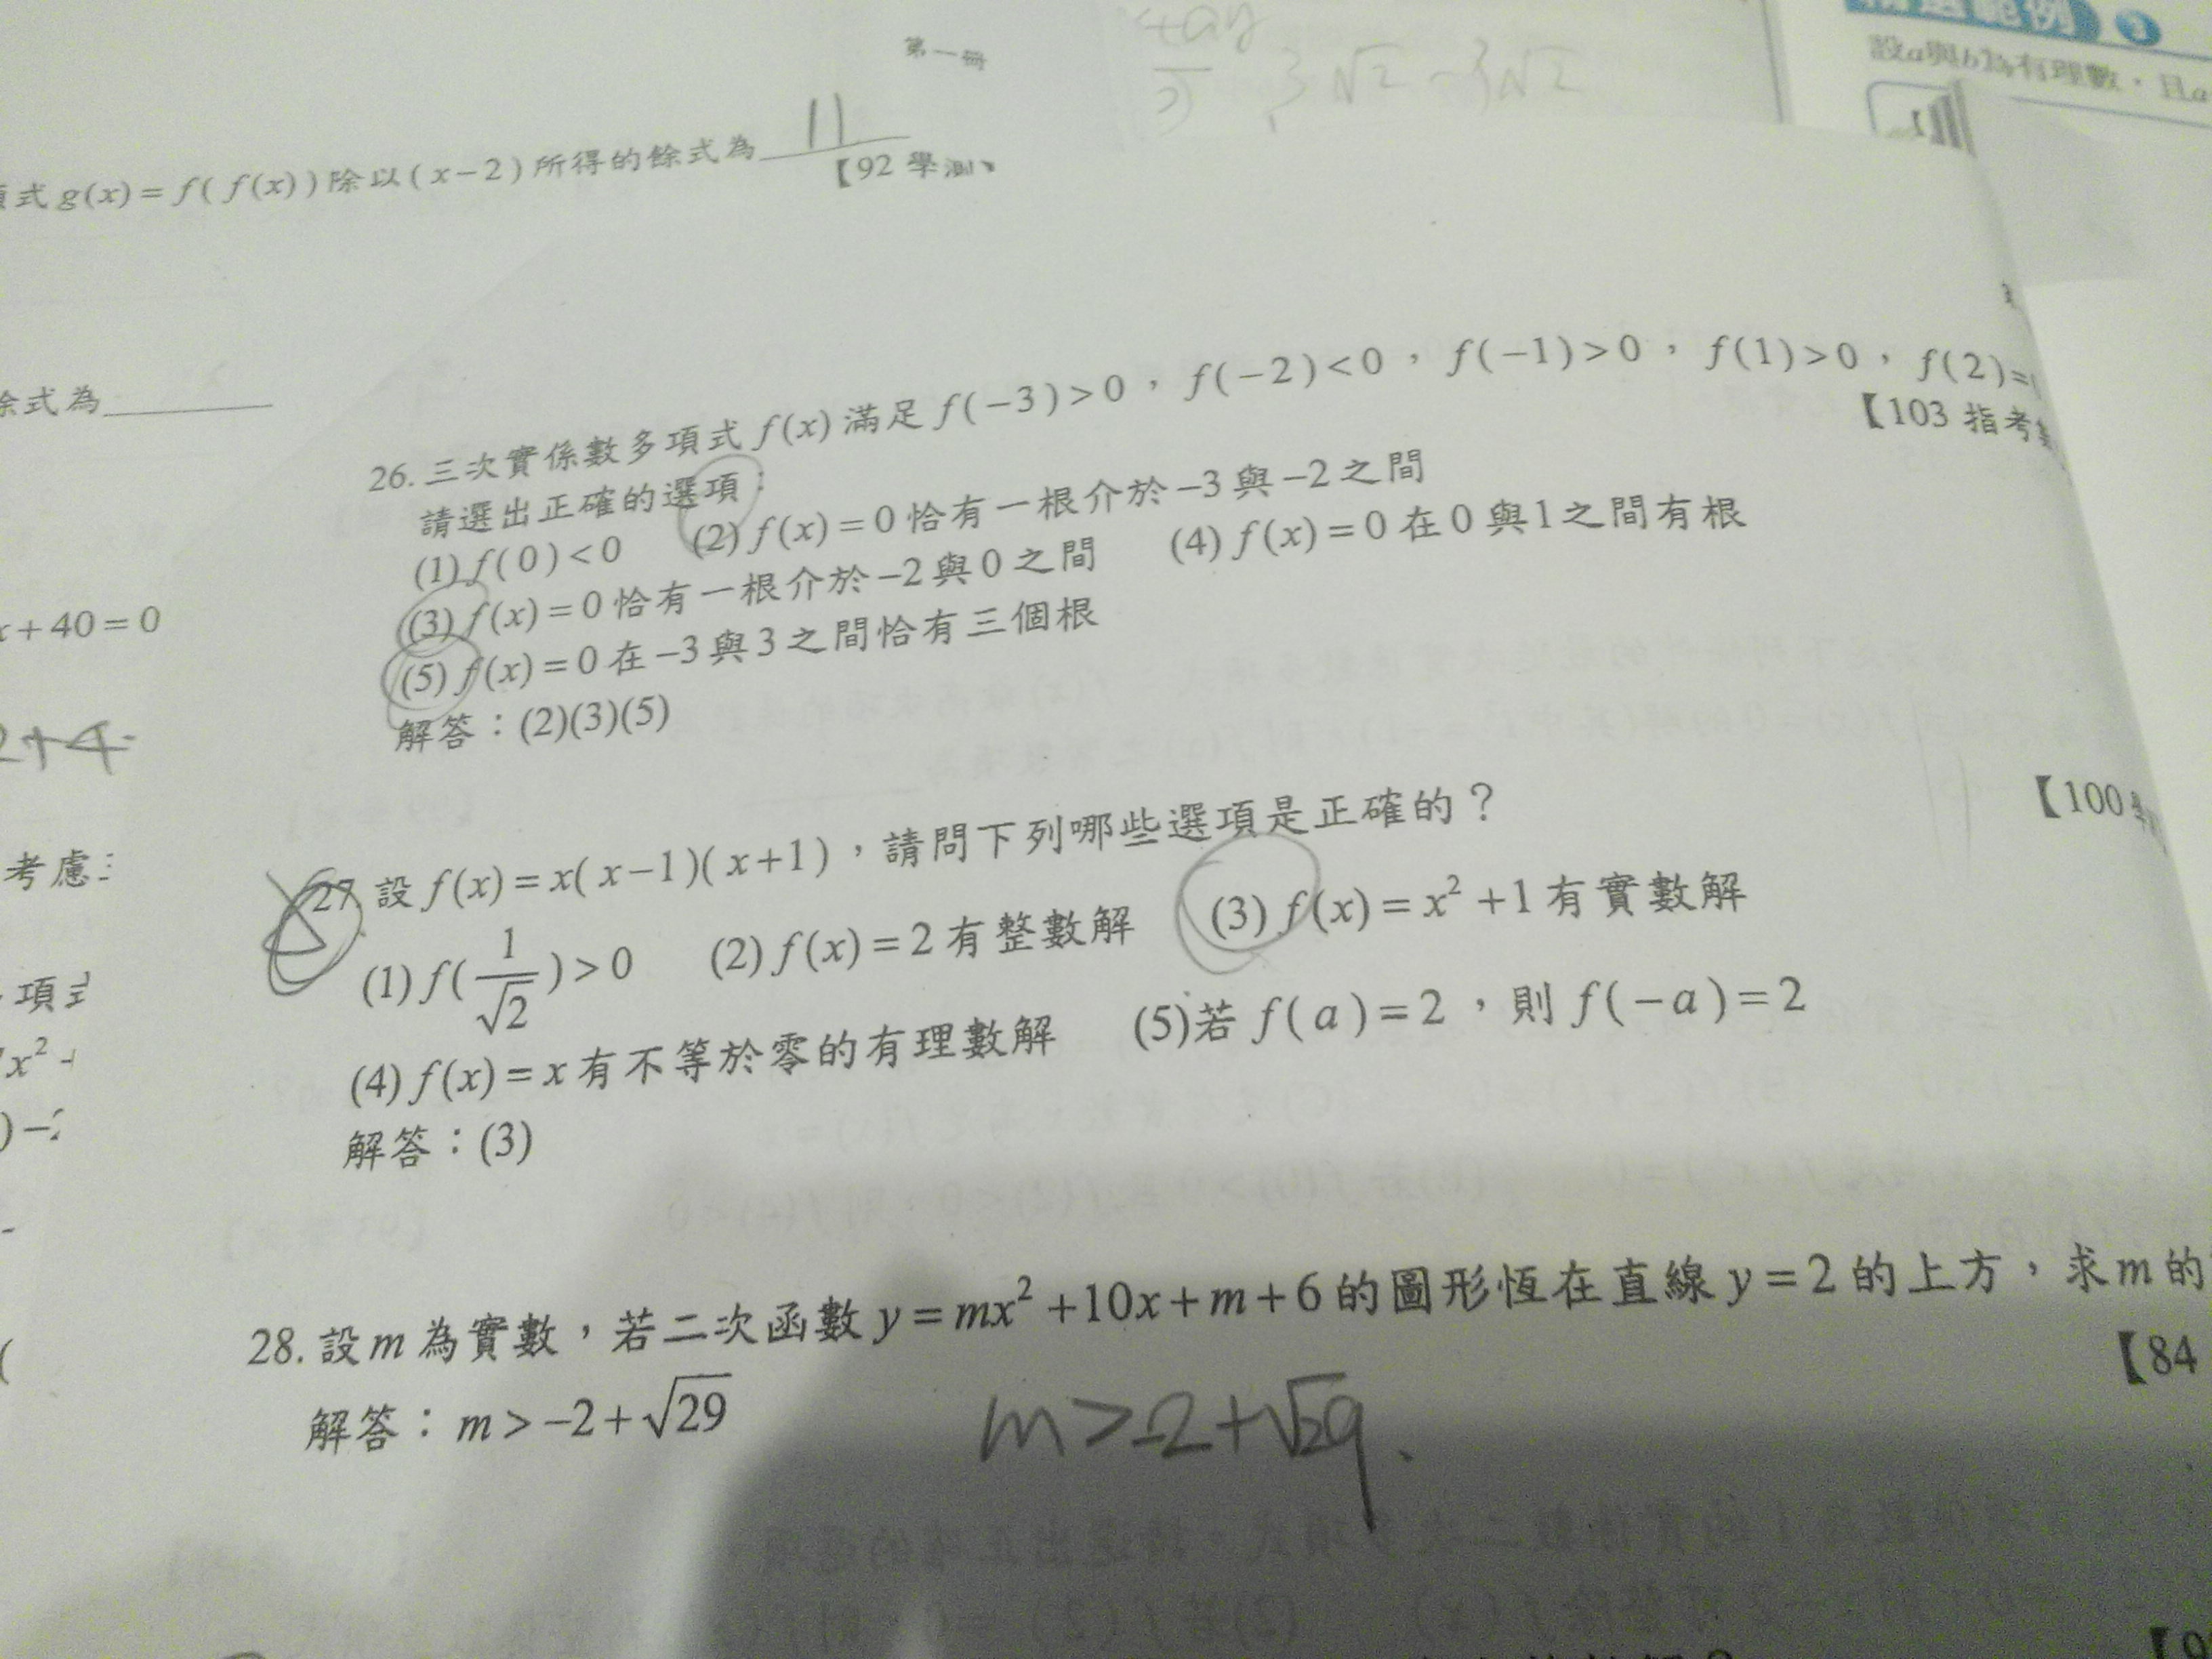 第一冊
+ay
3√2 -3√2
設a與b為有理數，且a
式 g(x) = f( f(x) ) 除以 ( x-2 ) 所得的餘式為 11
【92 學測
餘式為
26. 三次實係數多項式 f(x) 滿足 f(-3)>0，f(-2)<0，f(-1)>0，f(1)>0，f(2)=
【103 指考
請選出正確的選項：
(1) f(0)<0 (2) f(x)=0 恰有一根介於 -3 與 -2 之間
(3) f(x)=0 恰有一根介於 -2 與 0 之間 (4) f(x)=0 在 0 與 1 之間有根
(5) f(x)=0 在 -3 與 3 之間恰有三個根
解答：(2)(3)(5)
x+40=0
2+4
考慮
項式
x² -
27. 設 f(x)=x( x-1)( x+1)，請問下列哪些選項是正確的？
【100
(1) f(1/√2)>0 (2) f(x)=2 有整數解 (3) f(x)=x²+1 有實數解
(4) f(x)=x 有不等於零的有理數解 (5)若 f(a)=2，則 f(-a)=2
解答：(3)
28. 設 m 為實數，若二次函數 y=mx²+10x+m+6 的圖形恆在直線 y=2 的上方，求 m 的
【84
解答：m>-2+√29
m>-2+√29.